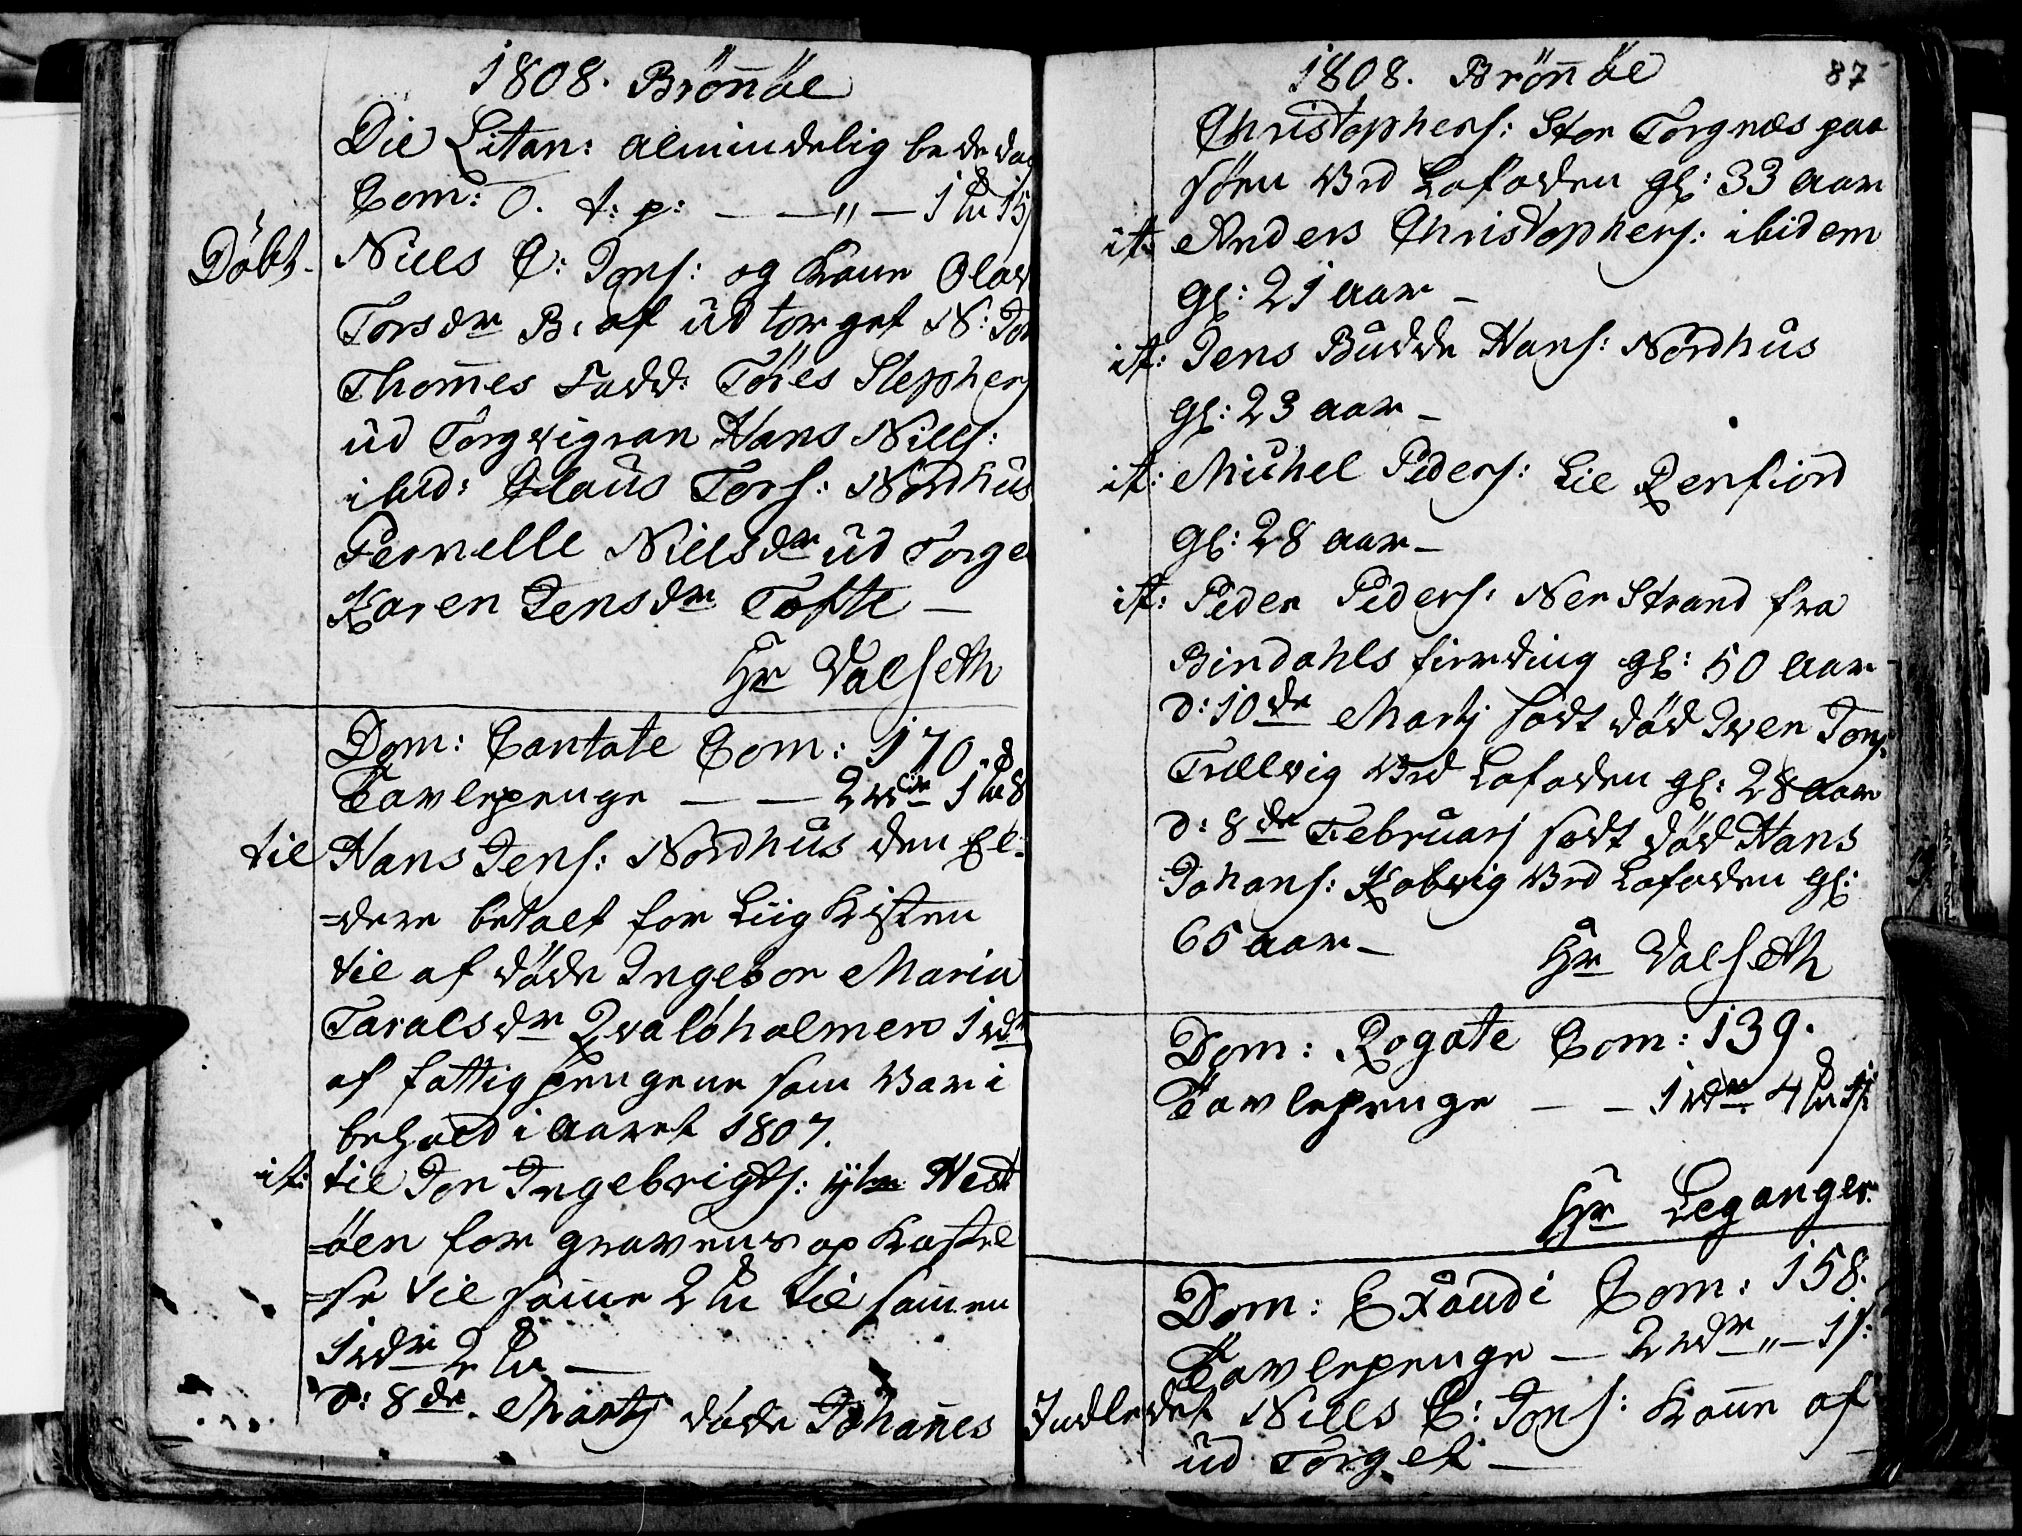 1808. Brönöe
Die Litan: almindelig bededag
Com: 0. t: p: — — " — 1
Döbt. Niels C: Jons: og Kone Olava
Torsdr B: af üdtorget N: Jon
Thomes Fadd: Töres Stephens
üd Torgvigran Hans Niels:
ibid: Claüs Tors: Nordhüs
Pernelle Nielsdr üd Torge
Karen Jensdr Tofte —
Hr Valseth
Dom: Cantate Com: 170.
Tavlepenge — — 2 rdr 1 8
til Hans Jens: Nordhüs den El-
=dere betalt for Liig Kisten
til afdöde Ingebor Maria
Taralsdr Qvalöholmen 1 rdr
af fattigpengene som var i
behold i aaret 1807.
it: til Jon Ingebrigts: Hest
=öen for gravens opkastel
=se til samme 2 til sammen
1 rdr 2 —
d: 8de Martj döde Johannes
1808. Brönöe 87
Christophers: Stor Torgnæs paa
söen ved Lofoden gl: 33 aar
it: Anders Christophers: ibidem
gl: 21 aar —
it: Jens Büdde Hans: Nordhüs
gl: 23 aar —
it: Michel Peders: Lie Renfiord
gl: 28 aar —
it: Peder Peders: Ner Strand fra
Bindahls fierding gl: 50 aar
d: 10de Martj sodt död Iver Jons:
Trælvig ved Lofoden gl: 28 aar
d: 8de Februarj sodt död Hans
Johans: Kobvig ved Lofoden gl:
65 aar — Hr Valseth
Dom: Rogate Com: 139.
Tavlepenge — — 1 rdr 4
Hr Leganger.
Dom: Exaudi Com: 158.
Tavlepenge — 2 rdr " — 1 s:
Indledet Niels C: Jons: Kone af
üd Torget —